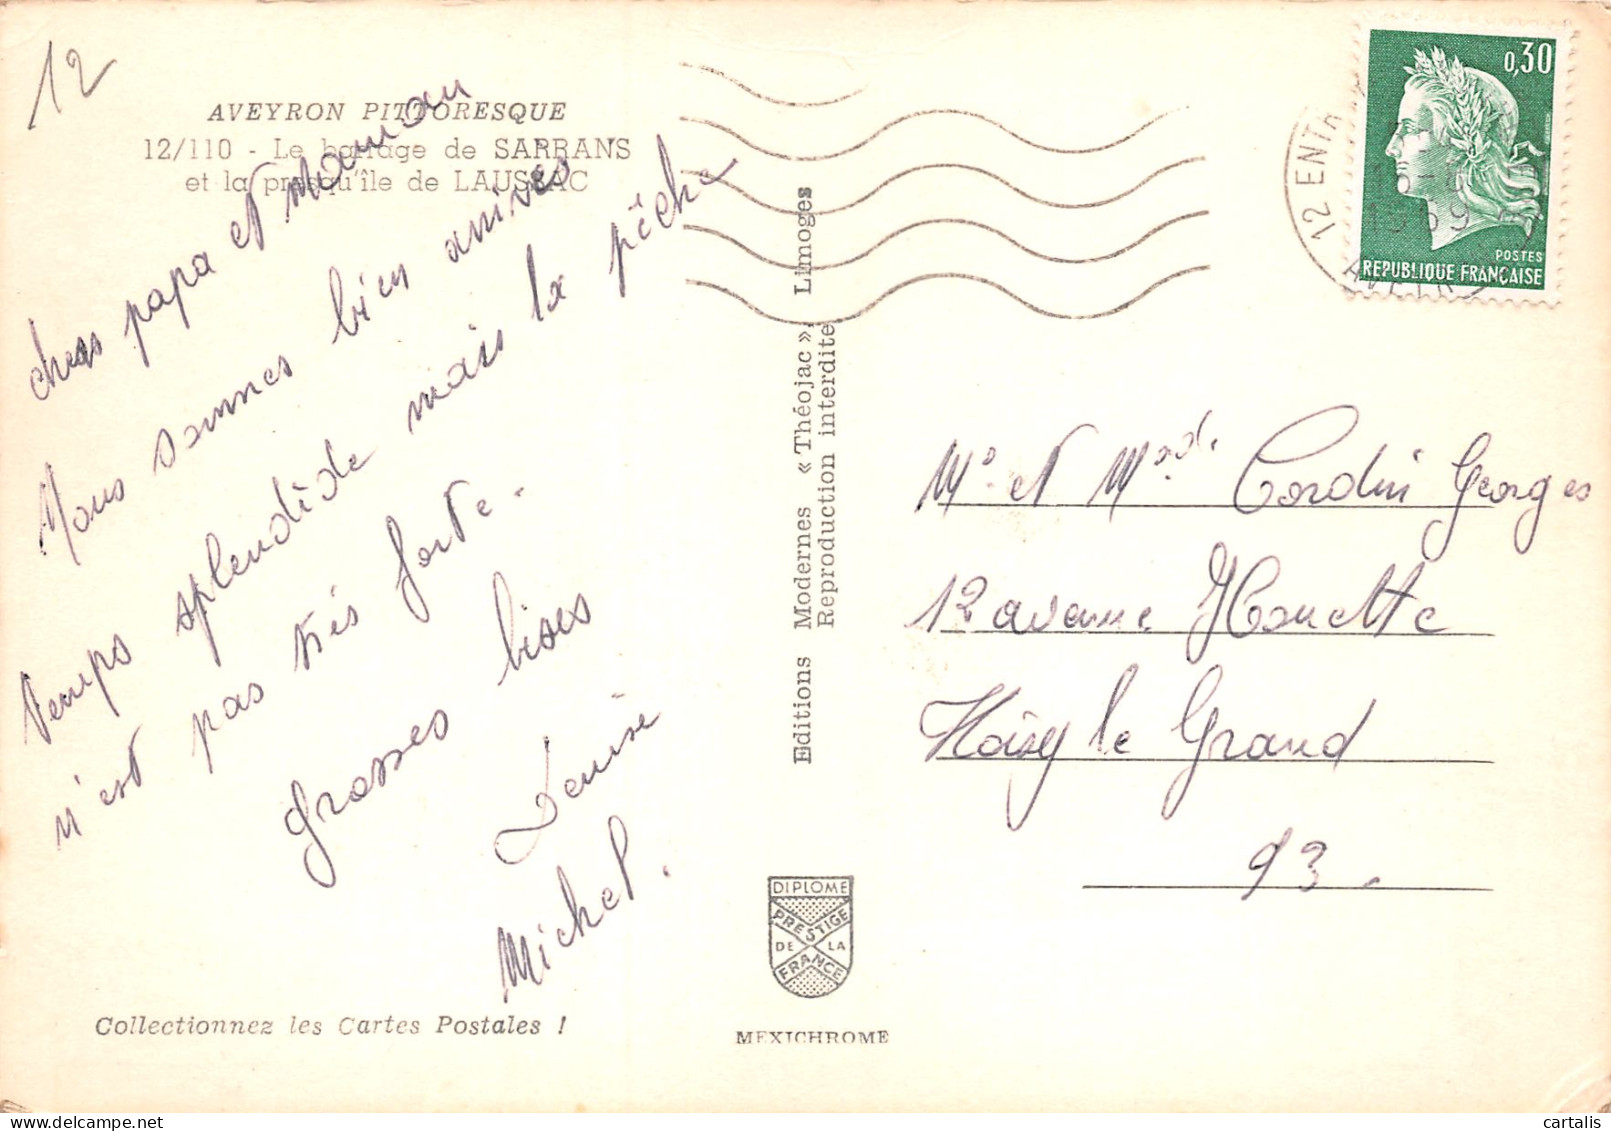 12
AVEYRON PITTORESQUE
12/110 - Le barrage de SARRANS
et la presqu'île de LAUSSAC
chers papa et maman
Nous sommes bien arrives
temps splendide mais la pêche
n'est pas très forte.
grosses bises
Denise
Michel.
Collectionnez les Cartes Postales !
Editions Modernes « Théojac », Limoges
Reproduction interdite
DIPLOME
PRESTIGE
DE LA
FRANCE
MEXICHROME
0,30
POSTES
REPUBLIQUE FRANÇAISE
12 ENTR
1969
AVEYR
Mr et Made Cordin Georges
12 avenue Houette
Noisy le Grand
93.
cartalis